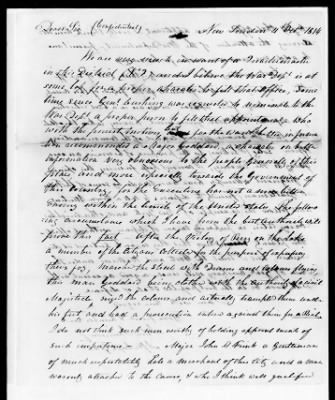 Dear Sir (Confidential) New London 11 Decr. 1814
We are very much in want of a
in this District and I believe the War Dept. is at
some loss for a proper character to fill that Office, Some
time since Genl. Cushing was requested to nominate to the
War Dept. a proper person to fill that appointment, who
with the purest motives but for the want of better informa
tion recommended a Major Goddard, a character on better
information very obnoxious to the people generally of this
State and more especially towards the Government of
this Country, for the Executive has not a more bitter
enemy within the limits of the United States. The follow
ing circumstance which I have from the best authority will
prove this fact. After the victory of Perry on the Lake
a number of the citizens collected for the purpose of expressing
their joy, marched the Streets with Drums and Colours flying
this man Goddard being clothed with the authority of a
Magistrate, seized the colours, and actually trampled them under
his feet, and had a prosecution entered against them for a Riot.
I do not think such men worthy of holding appointments of
such importance. Major John French a Gentleman
of much respectability late a merchant of this City and a man
warmly attached to the cause, & who I think well qualified